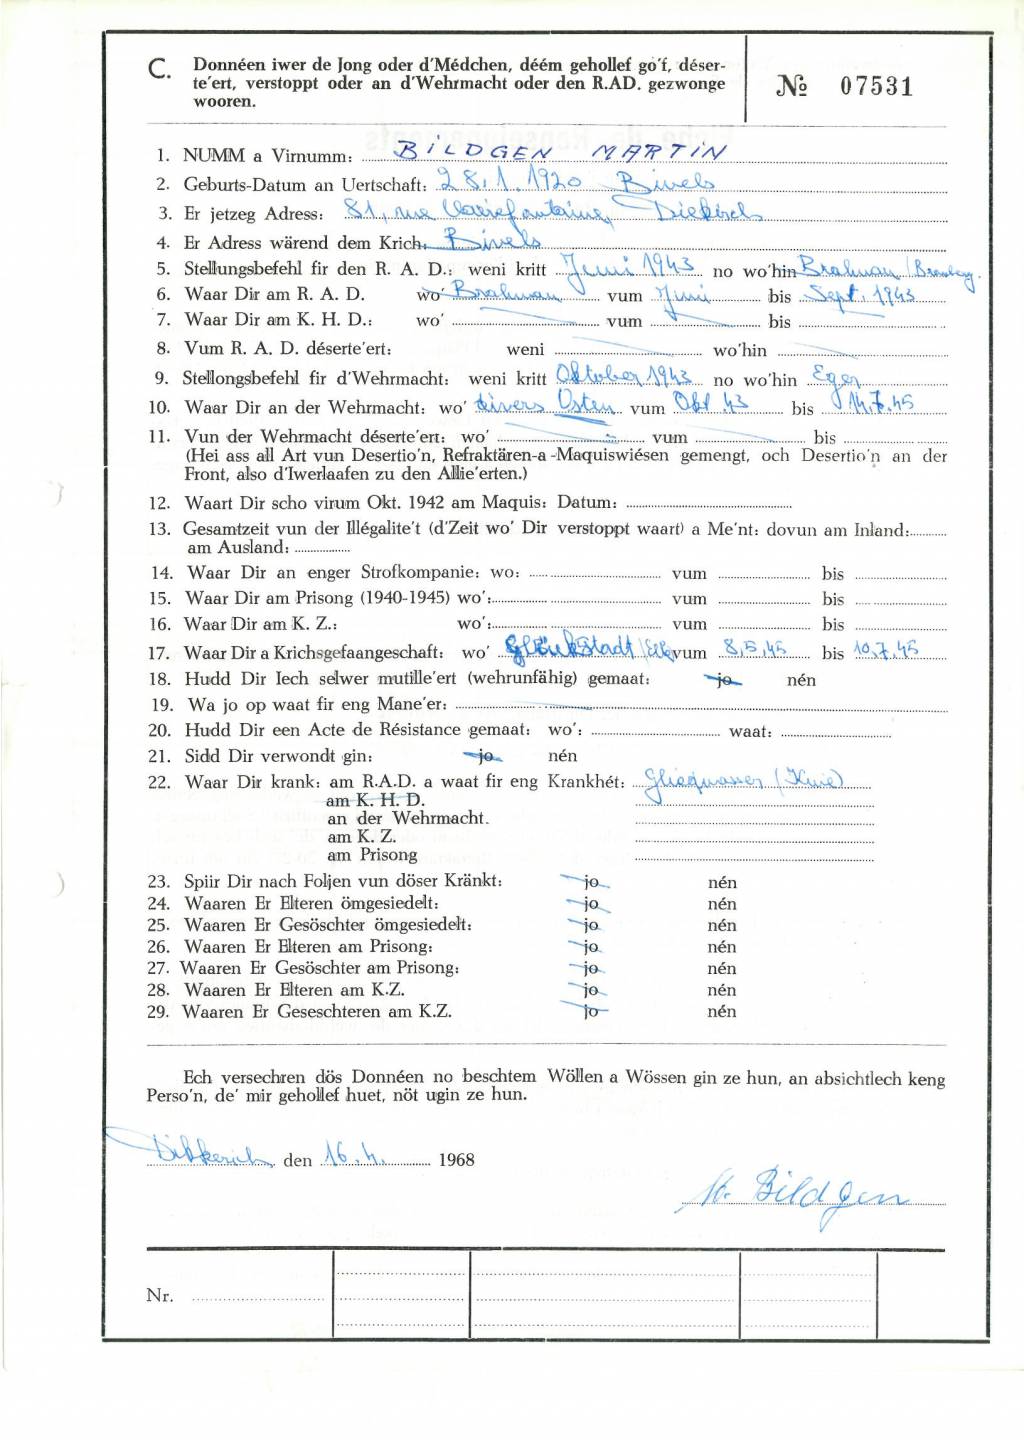 C. Donnéen iwer de Jong oder d'Médchen, déém gehollef go'f, déser-
te'ert, verstoppt oder an d'Wehrmacht oder den R.AD. gezwonge
wooren.
№ 07531
1. NUMM a Virnumm: BILDGEN MARTIN
2. Geburts-Datum an Uertschaft: 28.1.1920 Bivels
3. Er jetzeg Adress: 81, rue Clairefontaine, Diekirch
4. Er Adress wärend dem Krich: Bivels
5. Stellungsbefehl fir den R. A. D.: weni kritt Juni 1943 no wo'hin Brahnau / Bromberg.
6. Waar Dir am R. A. D. wo' Brahnau vum Juni bis Sept. 1943
7. Waar Dir am K. H. D.: wo' vum bis
8. Vum R. A. D. déserte'ert: weni wo'hin
9. Stellongsbefehl fir d'Wehrmacht: weni kritt Oktober 1943 no wo'hin Eger
10. Waar Dir an der Wehrmacht: wo' divers Osten vum Okt. 43 bis 45
11. Vun der Wehrmacht déserte'ert: wo' vum bis
(Hei ass all Art vun Desertio'n, Refraktären-a-Maquiswiésen gemengt, och Desertio'n an der
Front, also d'Iwerlaafen zu den Allie'erten.)
12. Waart Dir scho virum Okt. 1942 am Maquis: Datum:
13. Gesamtzeit vun der Illégalite't (d'Zeit wo' Dir verstoppt waart) a Me'nt: dovun am Inland:
am Ausland:
14. Waar Dir an enger Strofkompanie: wo: vum bis
15. Waar Dir am Prisong (1940-1945) wo': vum bis
16. Waar Dir am K. Z.: wo': vum bis
17. Waar Dir a Krichsgefaangeschaft: wo' Glückstadt / Elbe vum 8.5.45 bis 10.7.45
18. Hudd Dir Iech selwer mutille'ert (wehrunfähig) gemaat: jo nén
19. Wa jo op waat fir eng Mane'er:
20. Hudd Dir een Acte de Résistance gemaat: wo': waat:
21. Sidd Dir verwondt gin: jo nén
22. Waar Dir krank: am R.A.D. a waat fir eng Krankhét: (Knie)
am K. H. D.
an der Wehrmacht.
am K. Z.
am Prisong
23. Spiir Dir nach Foljen vun döser Kränkt: jo nén
24. Waaren Er Elteren ömgesiedelt: jo nén
25. Waaren Er Gesöschter ömgesiedelt: jo nén
26. Waaren Er Elteren am Prisong: jo nén
27. Waaren Er Gesöschter am Prisong: jo nén
28. Waaren Er Elteren am K.Z. jo nén
29. Waaren Er Geseschteren am K.Z. jo nén
Ech versechren dös Donnéen no beschtem Wöllen a Wössen gin ze hun, an absichtlech keng
Perso'n, de' mir gehollef huet, nöt ugin ze hun.
den 16.4. 1968
M. Bildgen
Nr.